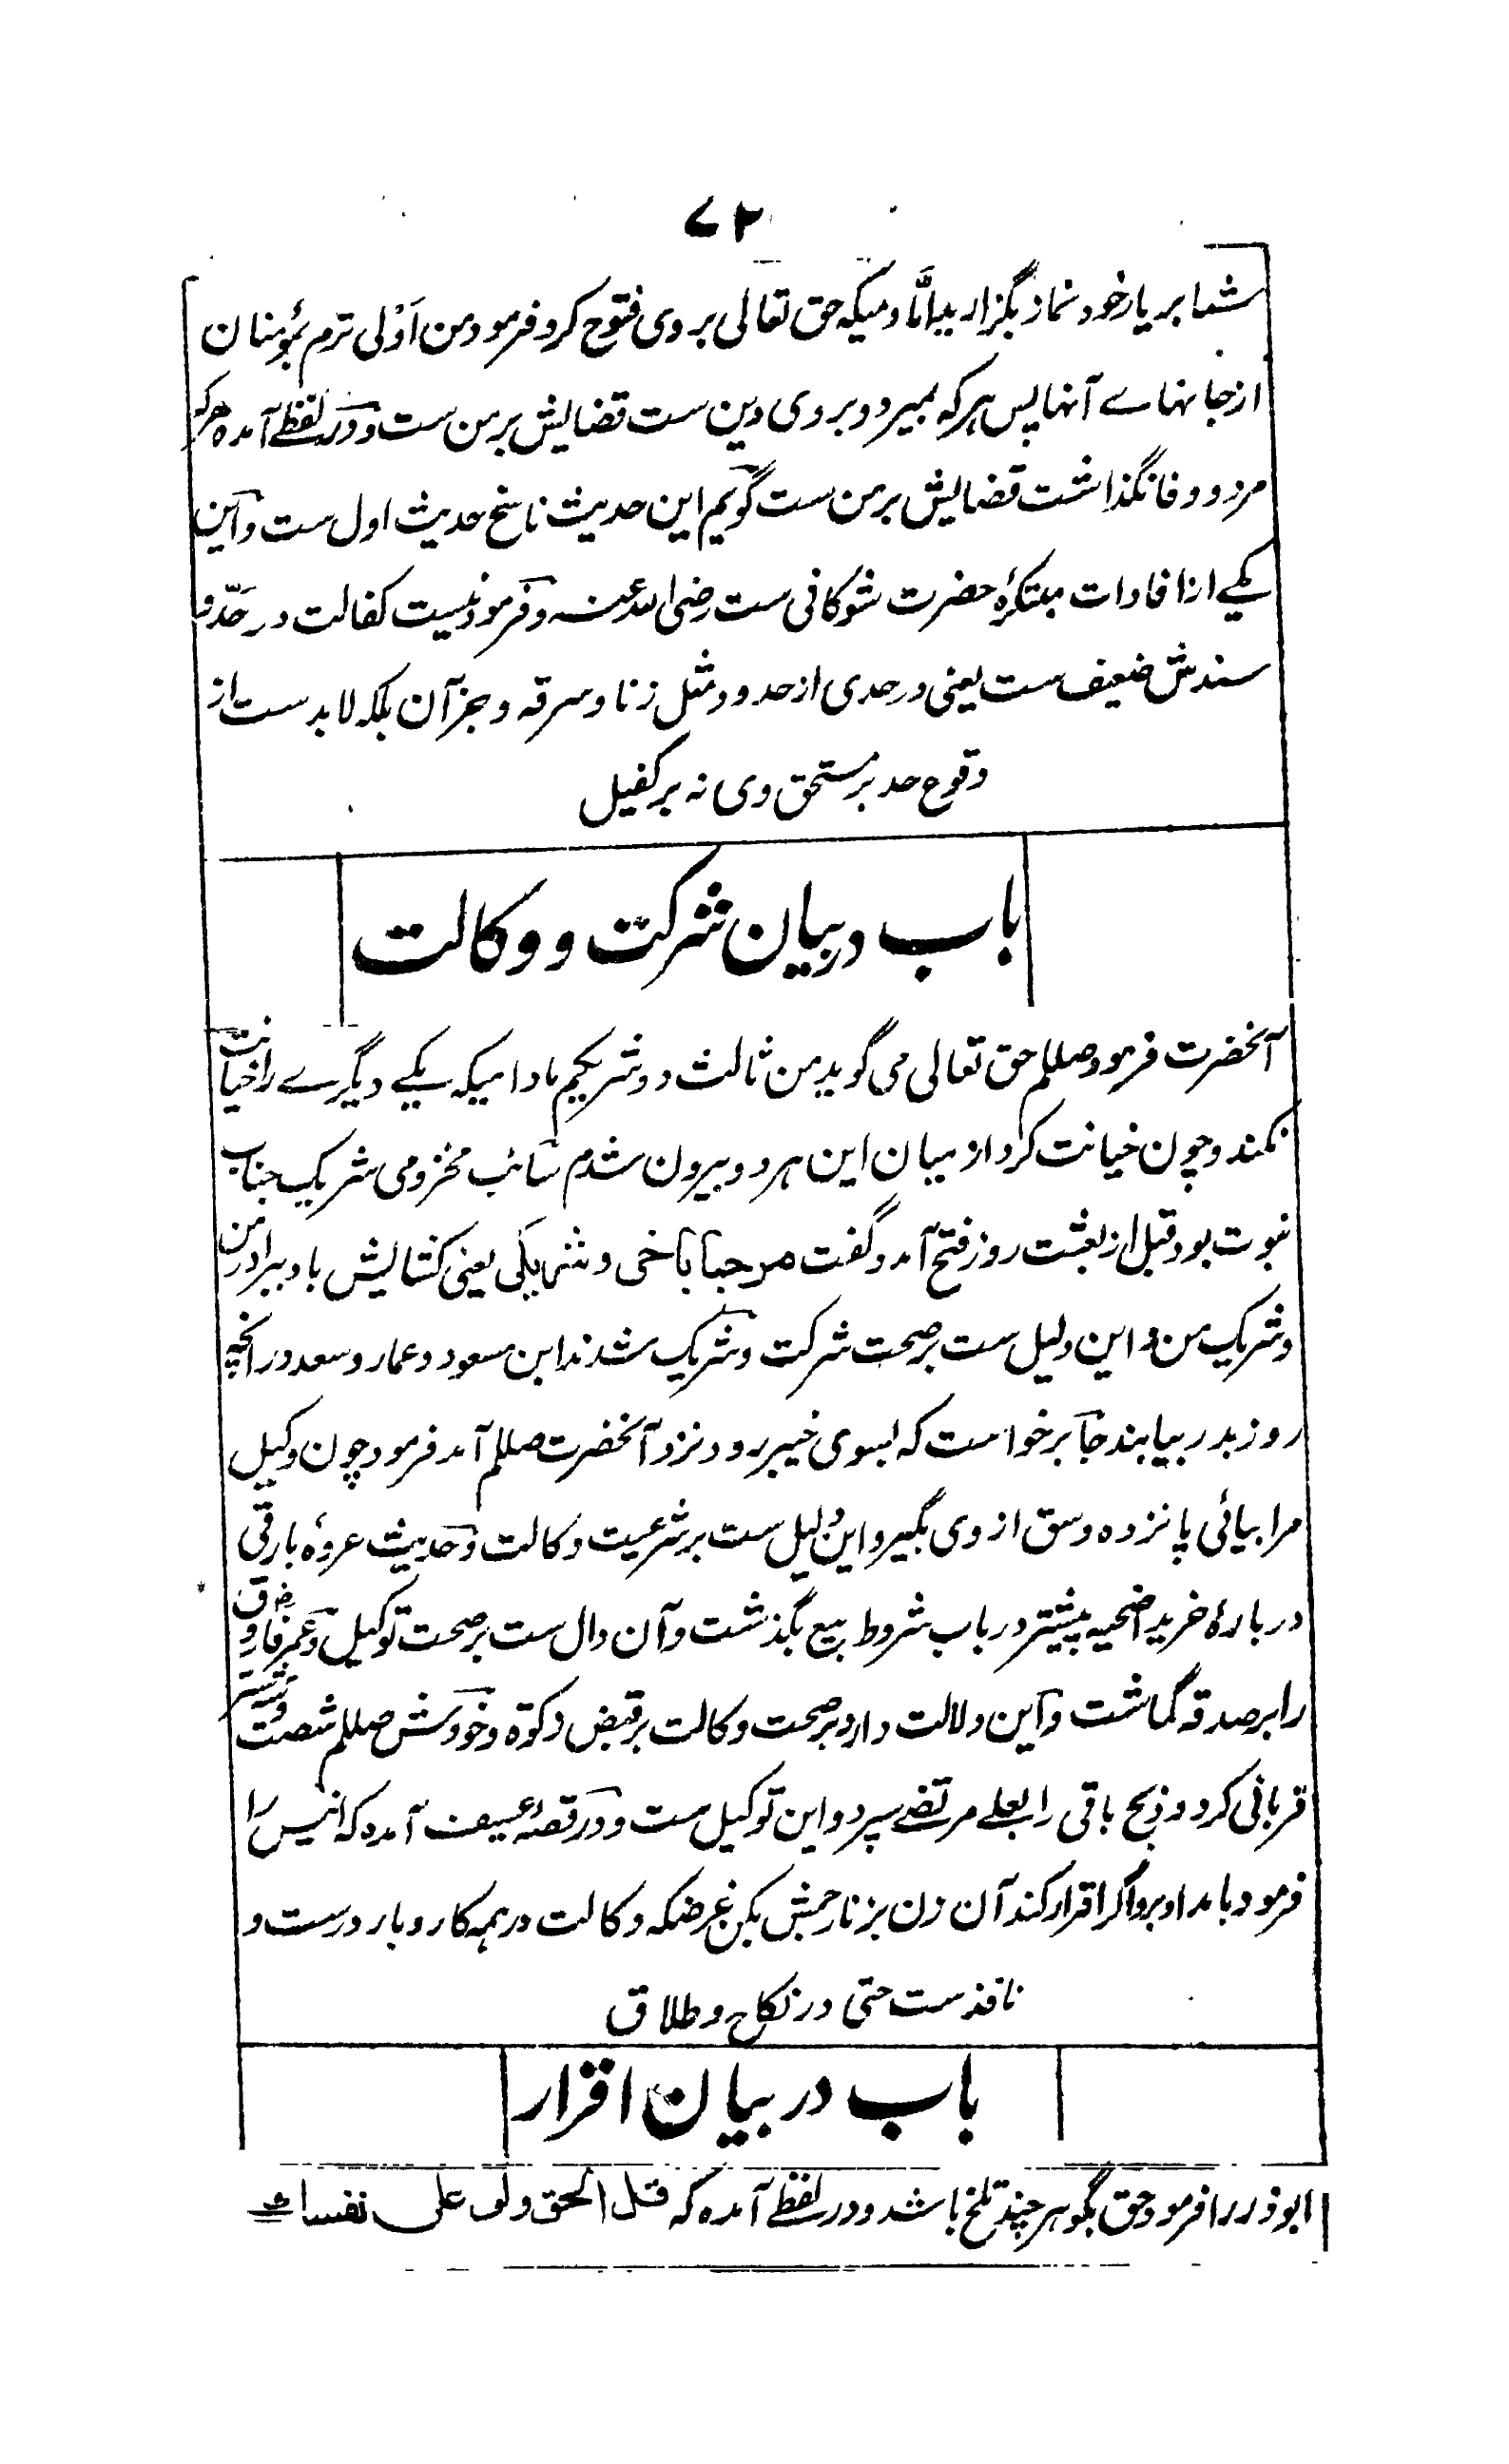 ۷۲
شما بر یار خود نماز بگزارید اما دمیکه حق تعالی بروی فتوح کرد فرمود من اَوْلی ترم بمؤمنان
از جانهاے آنها پس هرکه بمیرد و بروی دین ست قضایش بر من ست و در لفظے آمده هرکه
مرد و وفا نگذاشت قضایش بر من ست گویم این حدیث ناسخ حدیث اول ست و این
یکے از افادات مبتکرۀ حضرت شوکانی ست رضی الله عنه و فرمود نیست کفالت در حدّ و
سندش ضعیف ست یعنی در حدی از حدود مثل زنا و سرقه و جز آن بلکه لابدست از
وقوع حد بر مستحق وی نه بر کفیل
باب در بیان شرکت و وکالت
آنحضرت فرمود صللم حق تعالی می گوید من ثالث دو شریکیم مادامیکه یکے دیگرے را خیانت
نکند و چون خیانت کرد از میان این هر دو بیرون شدم سائب مخزومی شریک جناب
نبوت بود قبل از بعثت روز فتح آمد و گفت مرحبا باخی و شریکی یعنی کشایش باد برادر من
و شریک من و این دلیل ست بر صحت شرکت و شریک شدند ابن مسعود و عمار و سعد در انچه
روز بدر بیابند جابر خواست که بسوی خیبر رود نزد آنحضرت صللم آمد فرمود چون وکیل
مرا بیائی پانزده وسق از وی بگیر و این دلیل ست بر شرعیت وکالت و حدیث عروه بارقی
در بارۀ خرید اضحیه پیشتر در باب شروط بیع بگذشت و آن دال ست بر صحت توکیل و عمر فاروق رض
را بر صدقه گماشت و این دلالت دارد بر صحت وکالت بر قبض زکوة و خودش صللم شصت و سه شتر
قربانی کرد و ذبح باقی را بعلے مرتضے سپرد و این توکیل ست و در قصۀ عسیف آمده که انیس را
فرمود بامداد برو اگر اقرار کند آن زن بزنا رجمش بکن غرضکه وکالت در همه کاروبار درست و
نافذ ست حتی در نکاح و طلاق
باب در بیان اقرار
ابوذر را فرمود حق بگو هر چند تلخ باشد و در لفظے آمده که قل الحق ولو علی نفسك